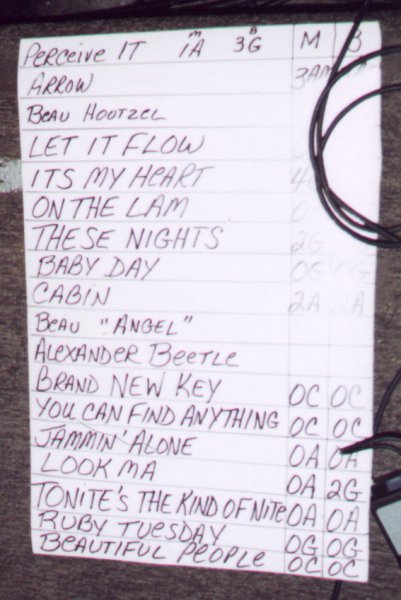 PERCEIVE IT M 1A B 3G M B
ARROW 3AM
BEAU HOUTZEL
LET IT FLOW
ITS MY HEART 4
ON THE LAM
THESE NIGHTS 2G
BABY DAY 0G
CABIN 2A 2A
BEAU "ANGEL"
ALEXANDER BEETLE
BRAND NEW KEY 0C 0C
YOU CAN FIND ANYTHING 0C 0C
JAMMIN' ALONE 0A 0A
LOOK MA 0A 2G
TONITE'S THE KIND OF NITE 0A 0A
RUBY TUESDAY 0G 0G
BEAUTIFUL PEOPLE 0C 0C